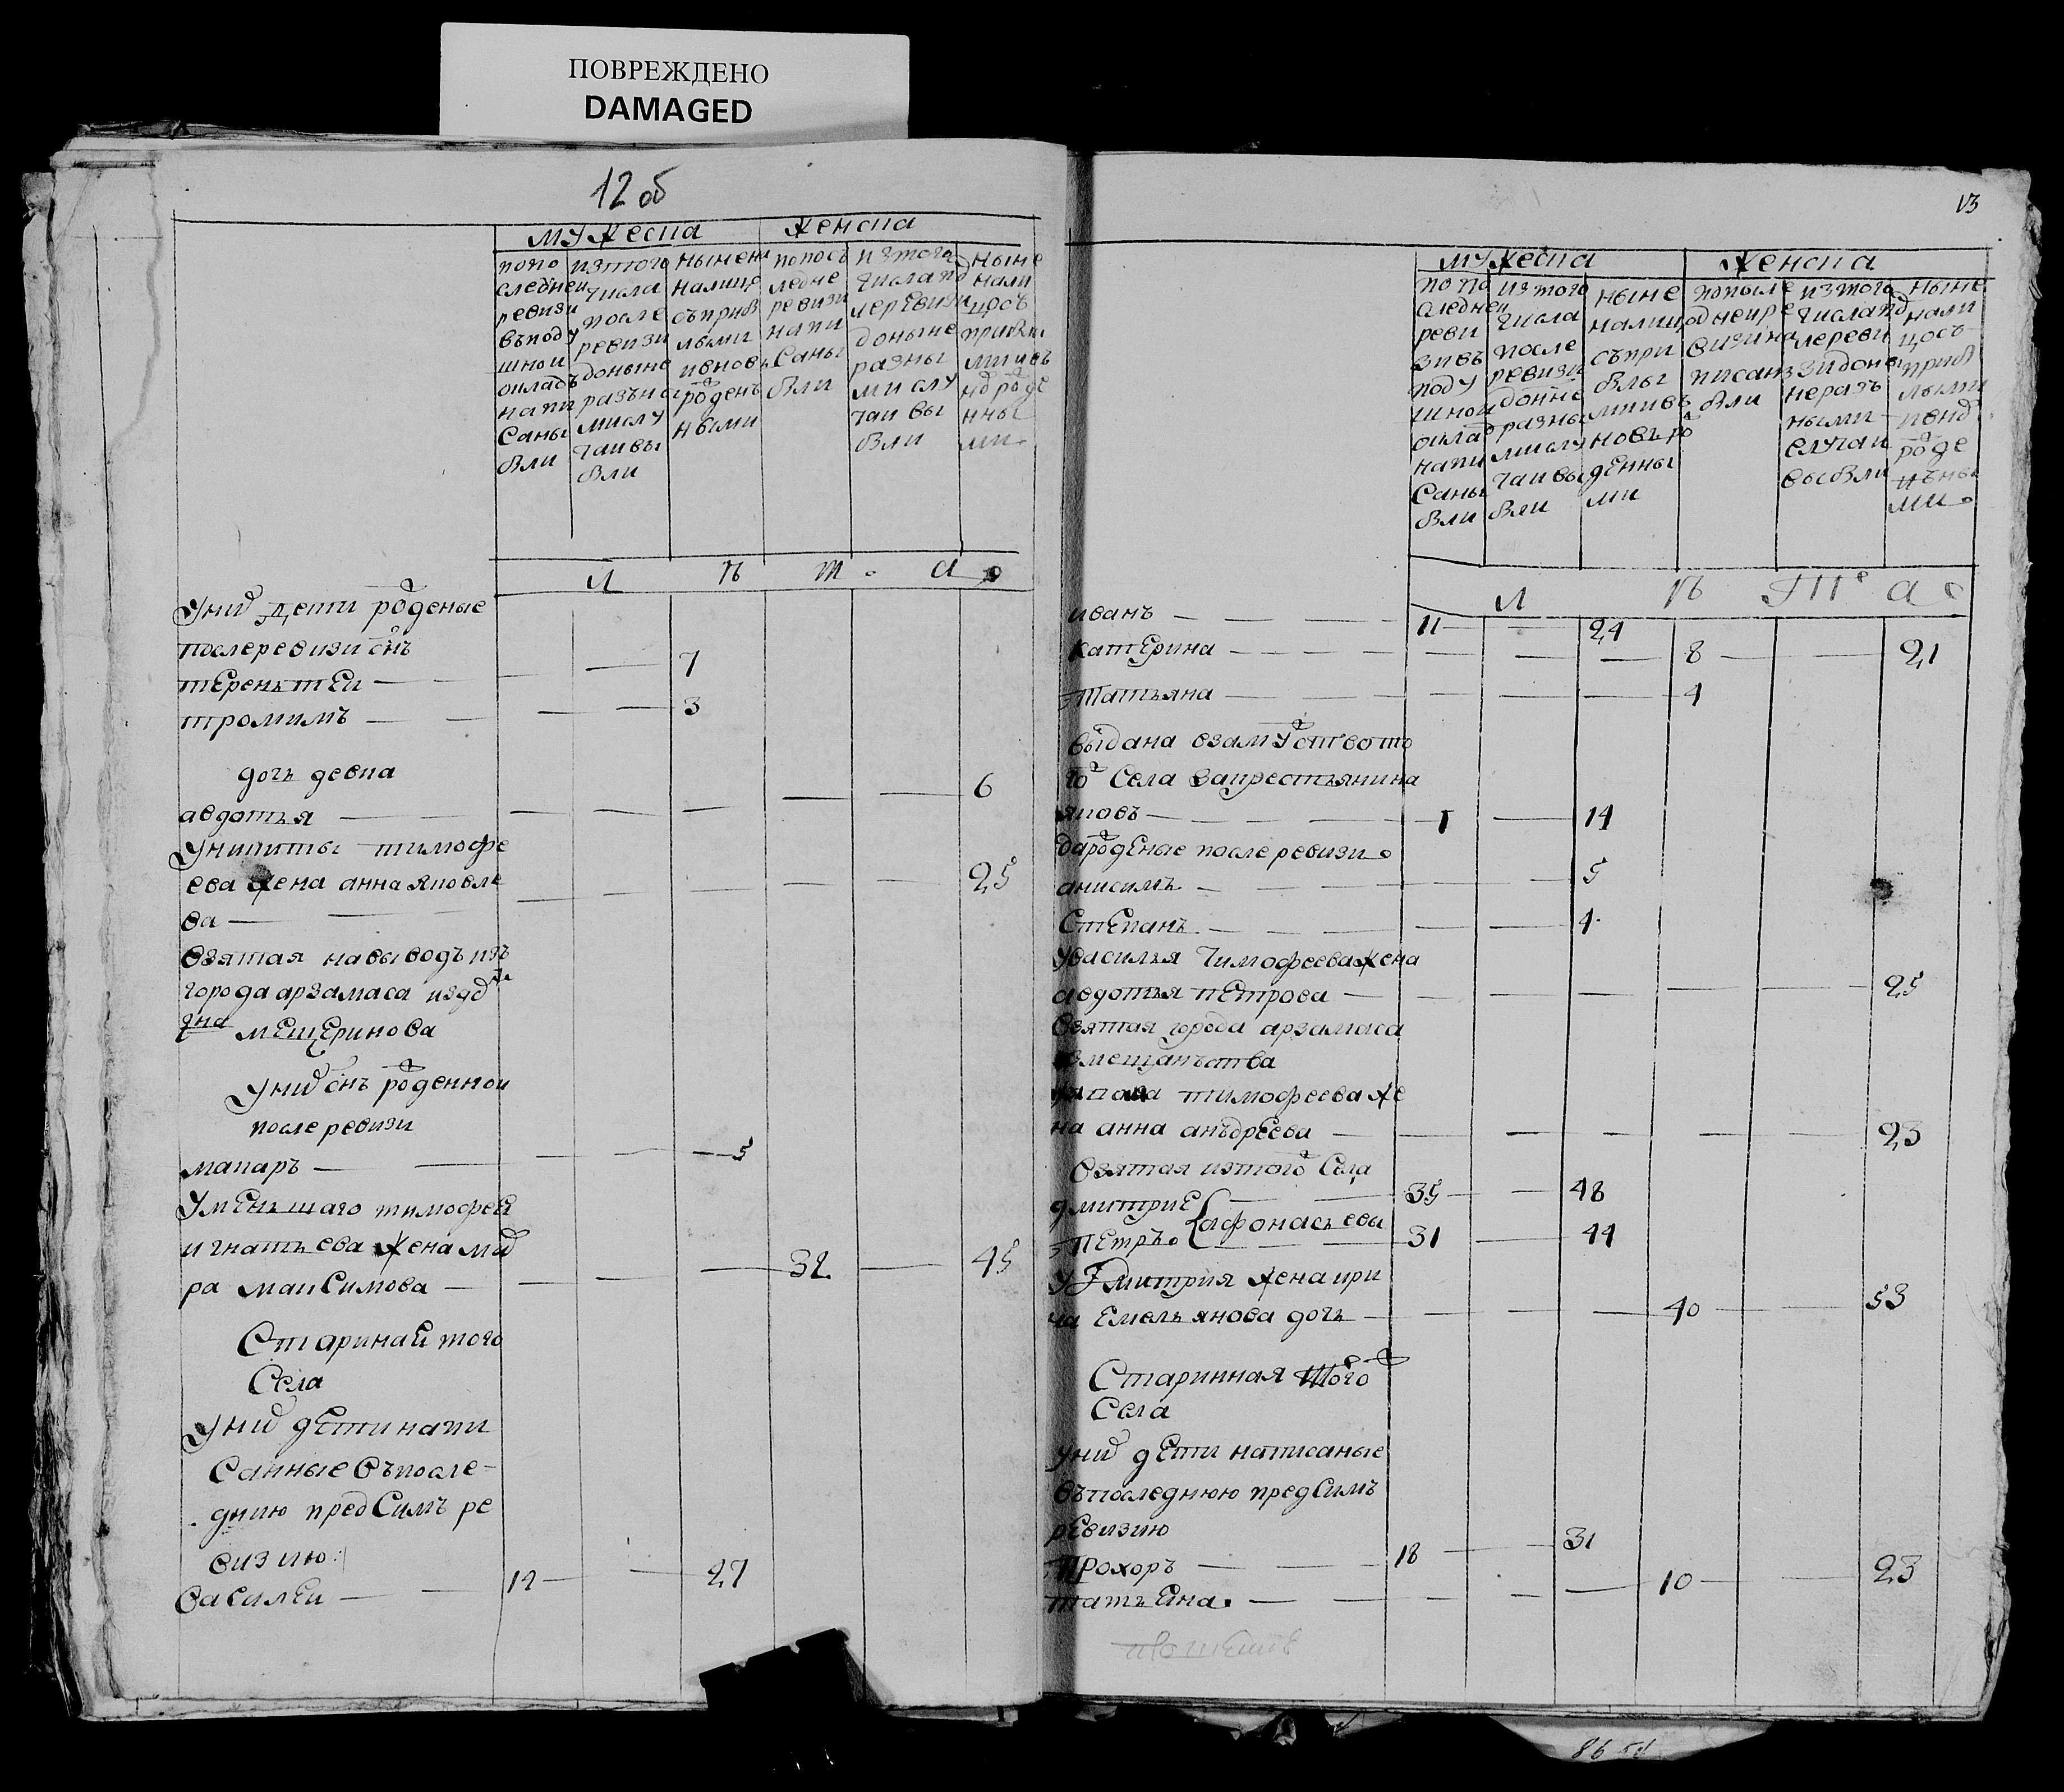 ПОВРЕЖДЕНО
DAMAGED
12 об
мужеска женска
попо
следнеи
ревизи
въподу
шнои
окладъ
напи
саны
были
изтого
числа
после
ревизи
доныне
разны
мислу
чаивы
были
нынен
налицо
съприб
лыми
ивновь
роден
ными
попос
ледне
ревизи
напи
саны
были
изтого
числапо
леревизи
доныне
разны
мислу
чаивы
были
ныне
нали
цосъ
прибы
лмиивъ
нороде
нны
ми
л п т а
уних дети роденые
послеревизи снъ
терентеи 7
трофимъ 3
дочь девка
авдотья 6
уникиты тимофе
ева жена анна яковле
ва 25
взятая навыводъ изъ
города арзамаса
мещеринова
уних снъ роденнои
после ревизи
макаръ 5
уменьшаго тимофея
игнатьева жена мав
ра максимова 32 45
Старинаея того
Села
уних дети напи
санные въпосле-
днию предсимъ ре
визию
василеи 12 27
13
мужеска женска
попо
следнеи
реви
зивъ
поду
шнои
оклад
напи
саны
были
изтого
числа
после
ревизи
доныне
разны
мислу
чаивы
были
ныне
налицо
съпри
былы
мивъ
новь ро
денны
ми
попосле
днеире
визина
писан
были
изтого
числапо
лереви
зидоны
неразъ
ными
случаи
высвли
ныне
нали
цосъ
приб
лыми
ивно
роде
нъны
ми
л п т а
иванъ 11 24
катерина 8 21
татьяна 4
выдана взамуство то
го села закрестьянина
яковъ 1 14
дароденые после ревизи
анисимъ 5
Степанъ 4
увасилья тимофеева жена
авдотья петрова 25
взятая города арзамаса
измещанъства
уивана тимофеева же
на анна анъдреева 23
взятая изтого села
дмитрие 35 48
афонасьевы
петръ 31 44
удмитрия жена ири
на емельянова дочь 40 53
Старинная того
Села
уних дети написаные
въпоследнюю предсимъ
ревизию
прохоръ 18 31
татьеина 10 23
86